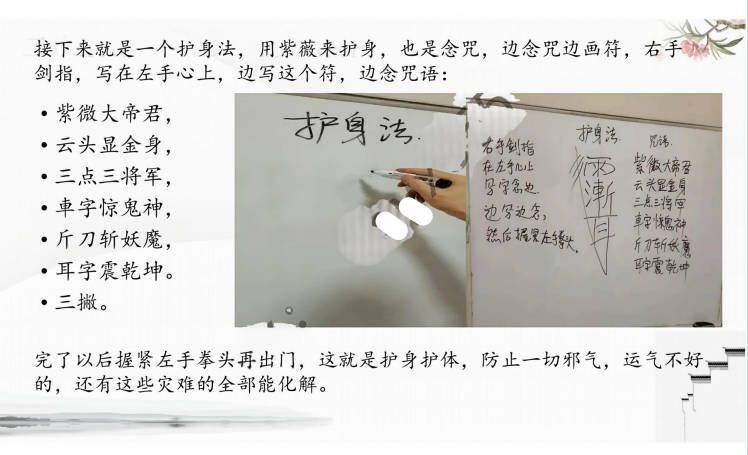 接下来就是一个护身法，用紫薇来护身，也是念咒，边念咒边画符，右手
剑指，写在左手心上，边写这个符，边念咒语：
• 紫微大帝君，
• 云头显金身，
• 三点三将军，
• 車字惊鬼神，
• 斤刀斩妖魔，
• 耳字震乾坤。
• 三撇。
护身法.
右手剑指
在左手心上
边写边念,
然后握紧左手拳头.
护身法.
渐
耳
咒语.
紫微大帝君
云头显金身
三点三将军
車字惊鬼神
斤刀斩妖魔
耳字震乾坤
完了以后握紧左手拳头再出门，这就是护身护体，防止一切邪气，运气不好
的，还有这些灾难的全部能化解。